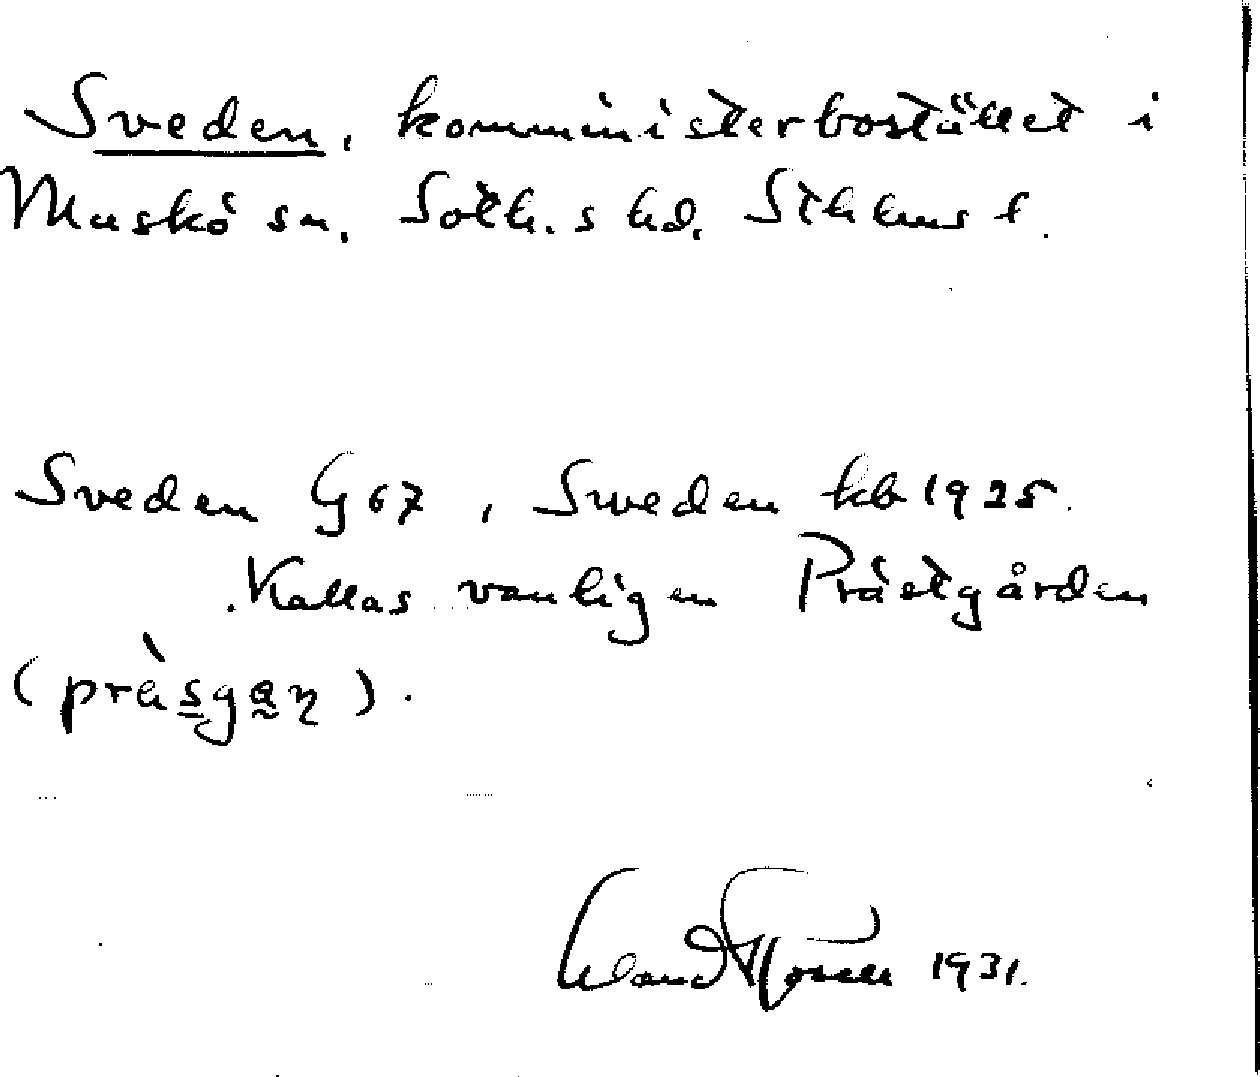 Sveden, komministerbostället i
Muskö sn, Soth.s hd, Sthlms l.
Sveden G 67, Sweden kb 1925.
Kallas vanligen Prästgården
(prä̀sgaɳ).
1931.